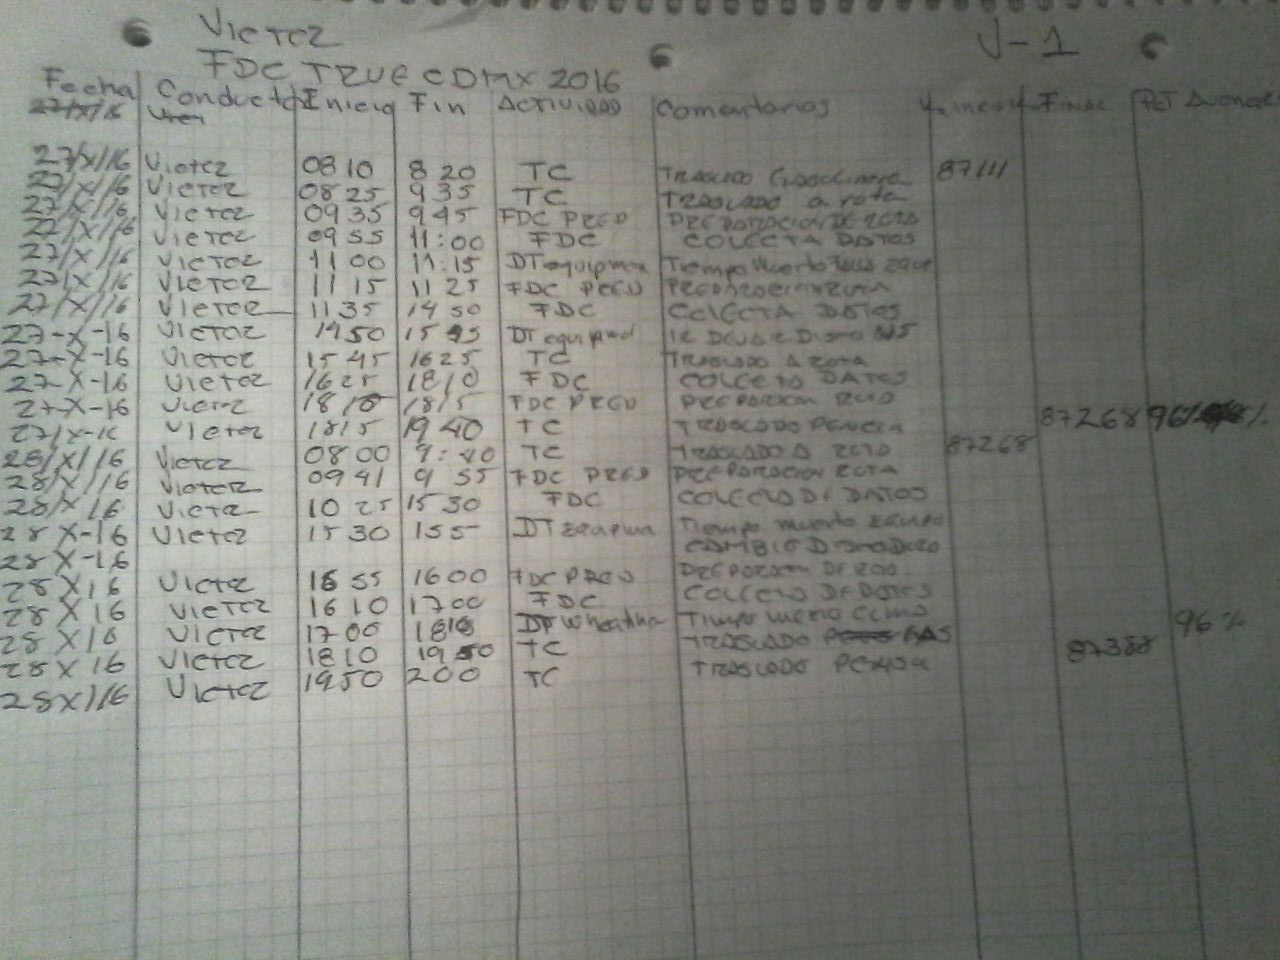 Victor V-1
FDC TRUE CDMX 2016
Fecha Conductor Inicio Fin ACTIVIDAD Comentarios FINAL PCT Avance
27/X/16
27/X/16 Victor 08 10 8 20 TC TRASLADO Gasolinera 87111
27/X/16 Victor 08 25 9 35 TC TRASLADO a ruta
27/X/16 Victor 09 35 9 45 FDC PREP PREPARACION DE RUTA
27/X/16 Victor 09 55 11:00 FDC COLECTA DATOS
27/X/16 Victor 11 00 11:15 DT equipmen Tiempo Muerto
27/X/16 Victor 11 15 11 25 FDC PREP PREPARACION RUTA
27/X/16 Victor 11 35 14 50 FDC COLECTA DATOS
27-X-16 Victor 14 50 15 45 DT equipmd Disco
27-X-16 Victor 15 45 16 25 TC TRASLADO A RUTA
27-X-16 Victor 16 25 18 10 FDC COLECTA DATOS
27-X-16 Victor 18 10 18 15 FDC PREP PREPARACION RUTA 87268 96%
27/X-16 Victor 18 15 19 40 TC TRASLADO PENCIA
28/X/16 Victor 08 00 9:40 TC TRASLADO A RUTA 87268
28/X/16 Victor 09 41 9 55 FDC PREP PREPARACION RUTA
28/X 16 Victor 10 25 15 30 FDC COLECTA DE DATOS
28 X-16 Victor 15 30 155 DT Tiempo muerto equipo
28 X-16 CAMBIO Disco Duro
28 X 16 Victor 16 55 1600 FDC PREP PREPARACION DE RUTA
28 X 16 Victor 16 10 17 00 FDC COLECTA DE DATOS
28 X 16 Victor 17 00 18 10 DT Wheather Tiempo muerto CLIMA 96%
28 X 16 Victor 18 10 19 50 TC TRASLADO GAS 87388
28 X/16 Victor 19 50 200 TC TRASLADO